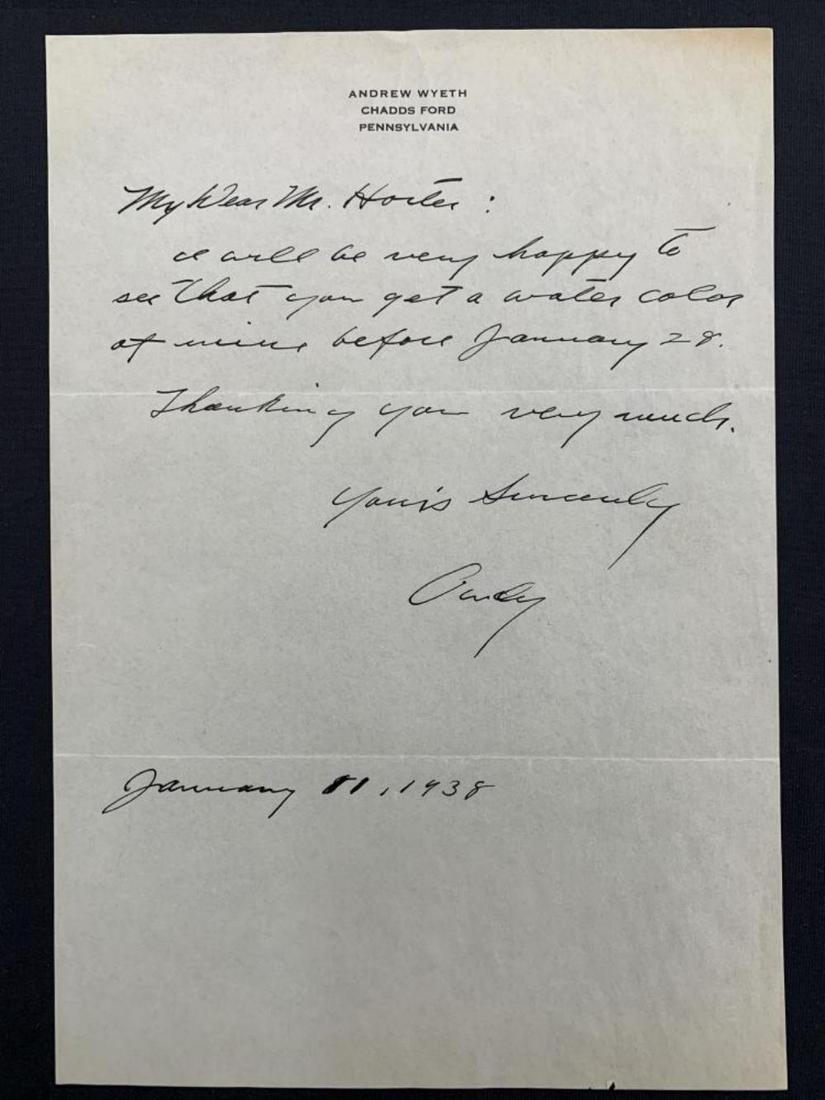 ANDREW WYETH
CHADDS FORD
PENNSYLVANIA
My Dear Mr. Horter:
I will be very happy to
see that you get a water color
of mine before January 28.
Thanking you very much.
Yours Sincerely
Andy
January 11, 1938